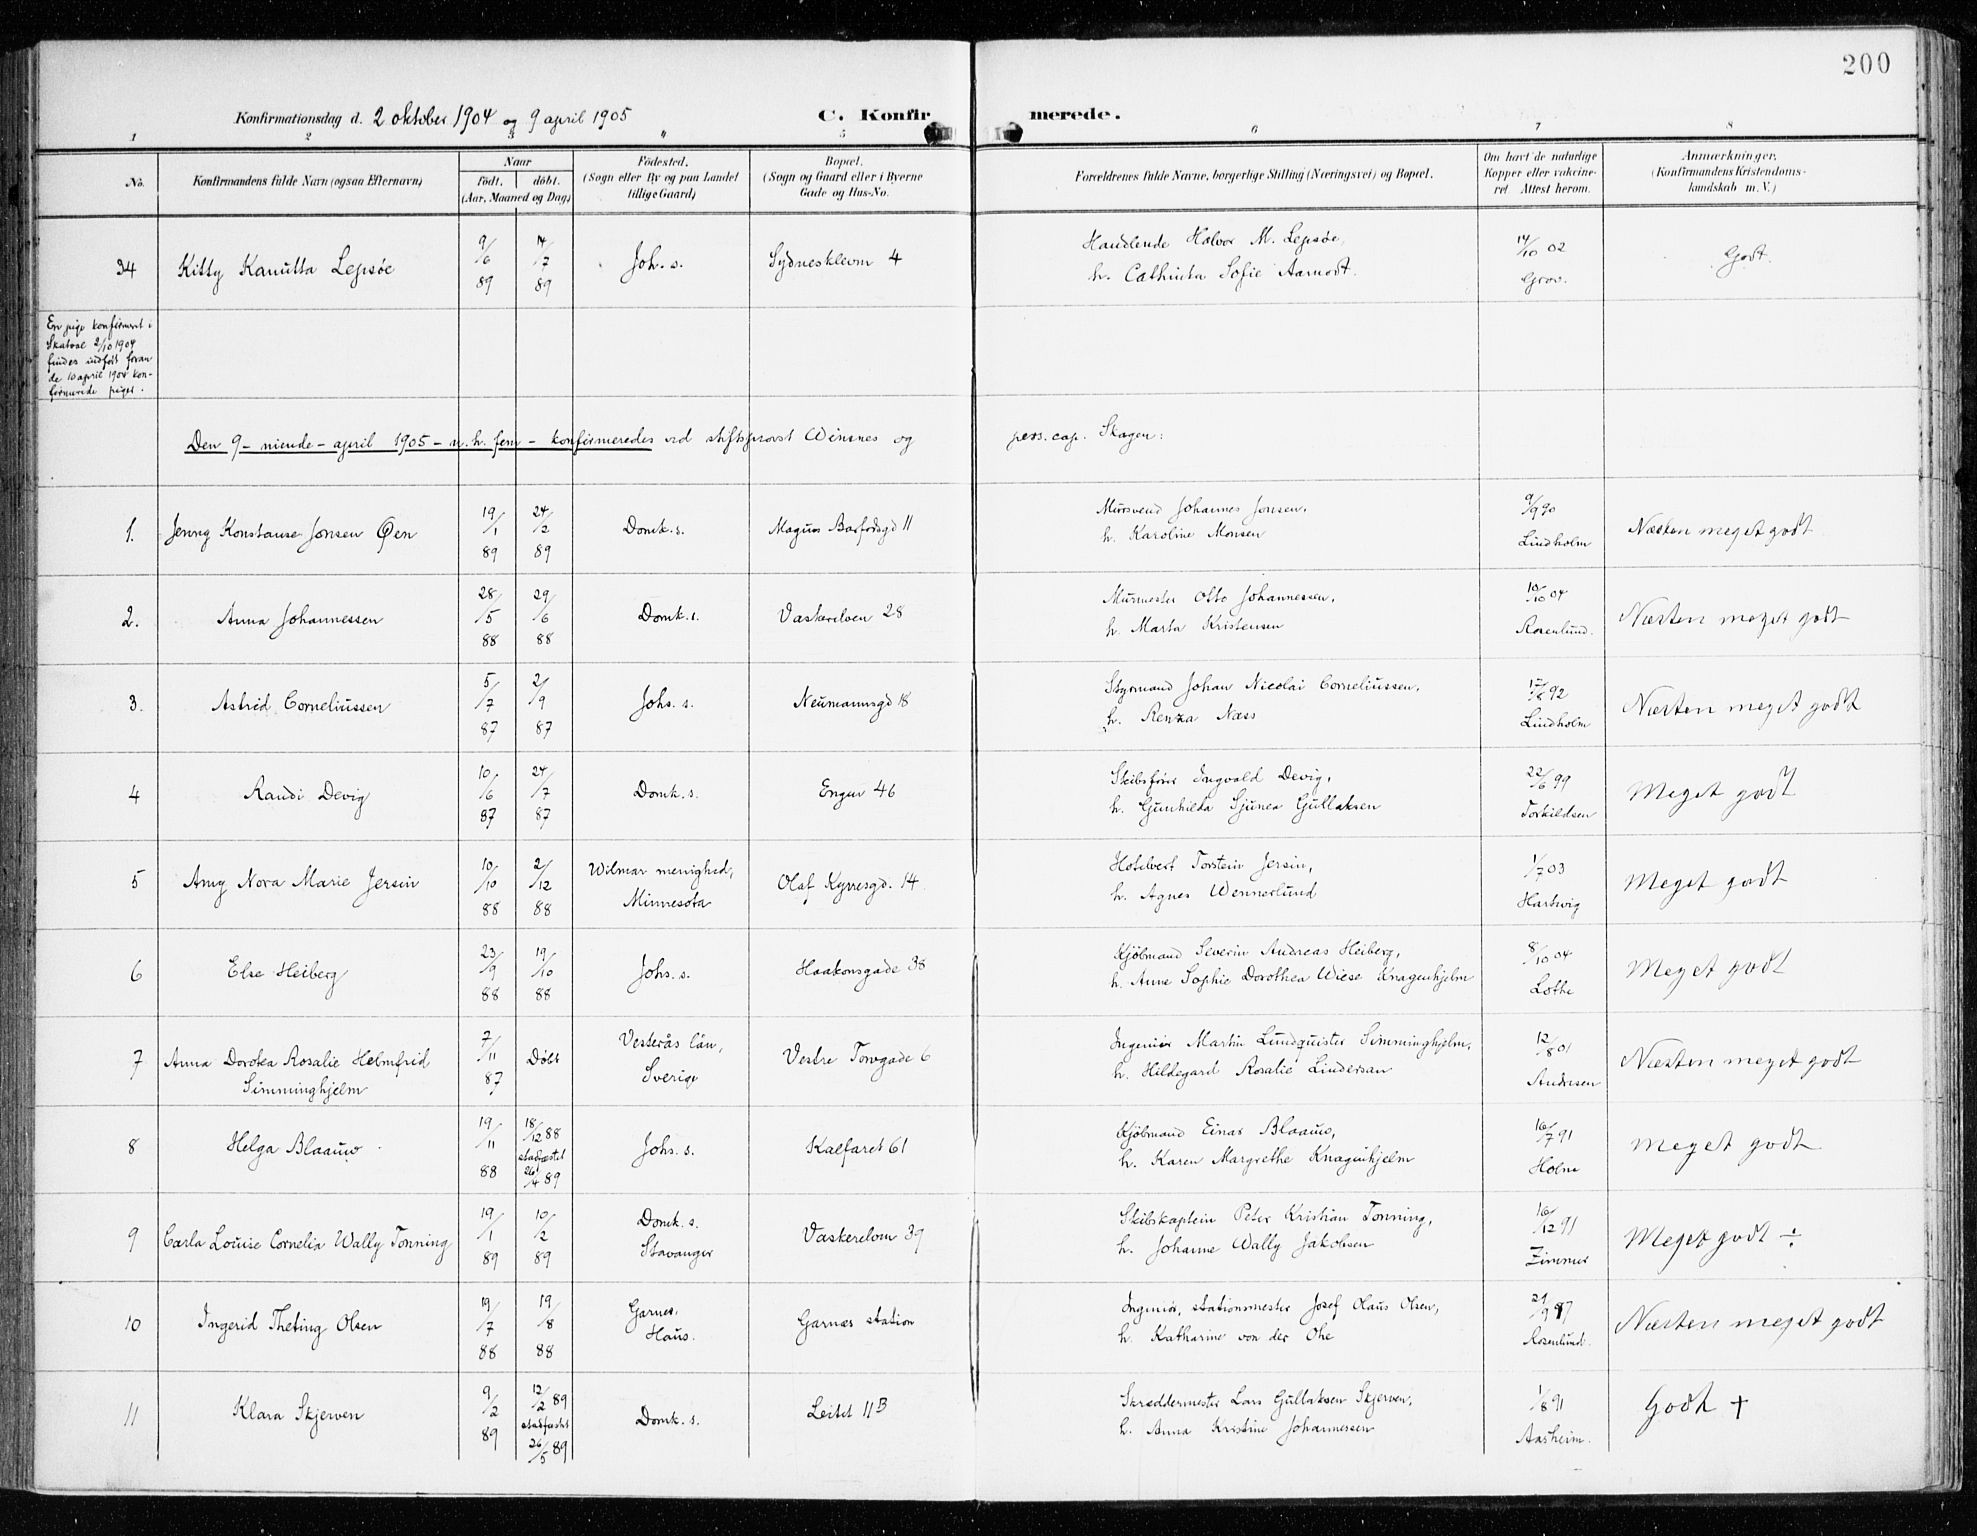 200
Konfirmationsdag d. 2 oktober 1904 og 9 april 1905 C. Konfirmerede.
1 2 3 4 5 6 7 8
No.
Konfirmandens fulde Navn (ogsaa Efternavn)
Naar
født. døbt.
(Aar, Maaned og Dag)
Fødested.
(Sogn eller By og paa Landet
tillige Gaard)
Bopæl.
(Sogn og Gaard eller i Byerne
Gade og Hus-No.
Forældrenes fulde Navne, borgerlige Stilling (Næringsvei) og Bopæl.
Om havt de naturlige
Kopper eller vakcine-
ret. Attest herom.
Anmærkninger.
(Konfirmandens Kristendoms-
kundskab m. V.)
34 Kitty Kanutta Lepsøe 9/6 89 14/7 89 Joh. s. Sydneskleven 4
Handlende Halvor M. Lepsøe,
h. Cathinta Sofie Aamodt.
14/10 02
Grov.
Godt.
En pige konfirmeret i
Skatval 2/10 1904
findes indført foran
de 10 april 1904 kon-
firmerede piger.
Den 9 – niende – april 1905 – n. h. fem – konfirmeredes ved stiftsprovst Winsnes og pers. cap. Skagen:
1. Jenny Konstanse Jonsen Øen 19/1 89 24/2 89 Domk. s. Magnus Barfodsgd 11
Mursvend Johannes Jonsen,
h. Karoline Monsen
9/9 90
Lindholm
Næsten meget godt
2. Anna Johannessen 28/5 88 29/6 88 Domk. s. Vaskerelven 28
Murmester Otto Johannessen,
h. Marta Kristensen
10/10 04
Rosenlund.
Næsten meget godt
3. Astrid Corneliussen 5/7 87 2/9 87 Johs. s. Neumannsgd 18
Styrmand Johan Nicolai Corneliussen,
h. Renza Næss
Lindholm
Næsten meget godt
4 Randi Devig 10/6 87 24/7 87 Domk. s. Engen 46
Skibsfører Ingvald Devig,
h. Gunhilda Sjunea Gullaksen
22/6 99
Torkildsen
Meget godt
5 Amy Nora Marie Jersin 10/10 88 2/12 88 Wilmar menighed,
Minnesota
Olaf Kyrresgd. 14
Hotelvert Torstein Jersin,
h. Agnes Wennerlund
1/7 03
Hartwig
Meget godt
6 Else Heiberg 23/9 88 19/10 88 Johs. s. Haakonsgade 38
Kjøbmand Severin Andreas Heiberg,
h. Anne Sophie Dorothea Wiese Knagenhjelm
8/10 04
Lothe
Meget godt
7 Anna Dorotea Rosalie Helmfrid
Simminghjelm
7/11 87 Døbt Vesterås län,
Sverige
Vestre Torvgade 6
Ingeniør Martin Lundquister Simminghjelm,
h. Hildegard Rosalie Lindersan
12/8 01
Andresen
Næsten meget godt
8 Helga Blaauw 19/11 88 18/12 88
stadfæstet
26/4 89
Johs. s. Kalfaret 61
Kjøbmand Einar Blaauw,
h. Karen Margrethe Knagenhjelm
16/7 91
Holm
Meget godt
9 Carla Louise Cornelia Wally Tonning 19/1 89 10/2 89 Domk. s.
Stavanger
Vaskerelven 39
Skibskaptein Peter Kristian Tonning,
h. Johanne Wally Jakobsen
16/12 91
Zimmer
Meget godt ÷
10 Ingerid Theting Olsen 19/7 88 19/8 88 Garnes,
Haus.
Garnæs station
Ingeniør, stationsmester Josef Olaus Olsen,
h. Katharine von der Ohe
Rosenlund.
Næsten meget godt
11 Klara Skjerven 9/2 89 12/2 89
stadfæstet
26/5 89
Domk. s. Leitet 11B
Skræddermester Lars Gullaksen Skjerven,
h. Anna Kristine Johannessen
1/8 91
Aasheim.
Godt +